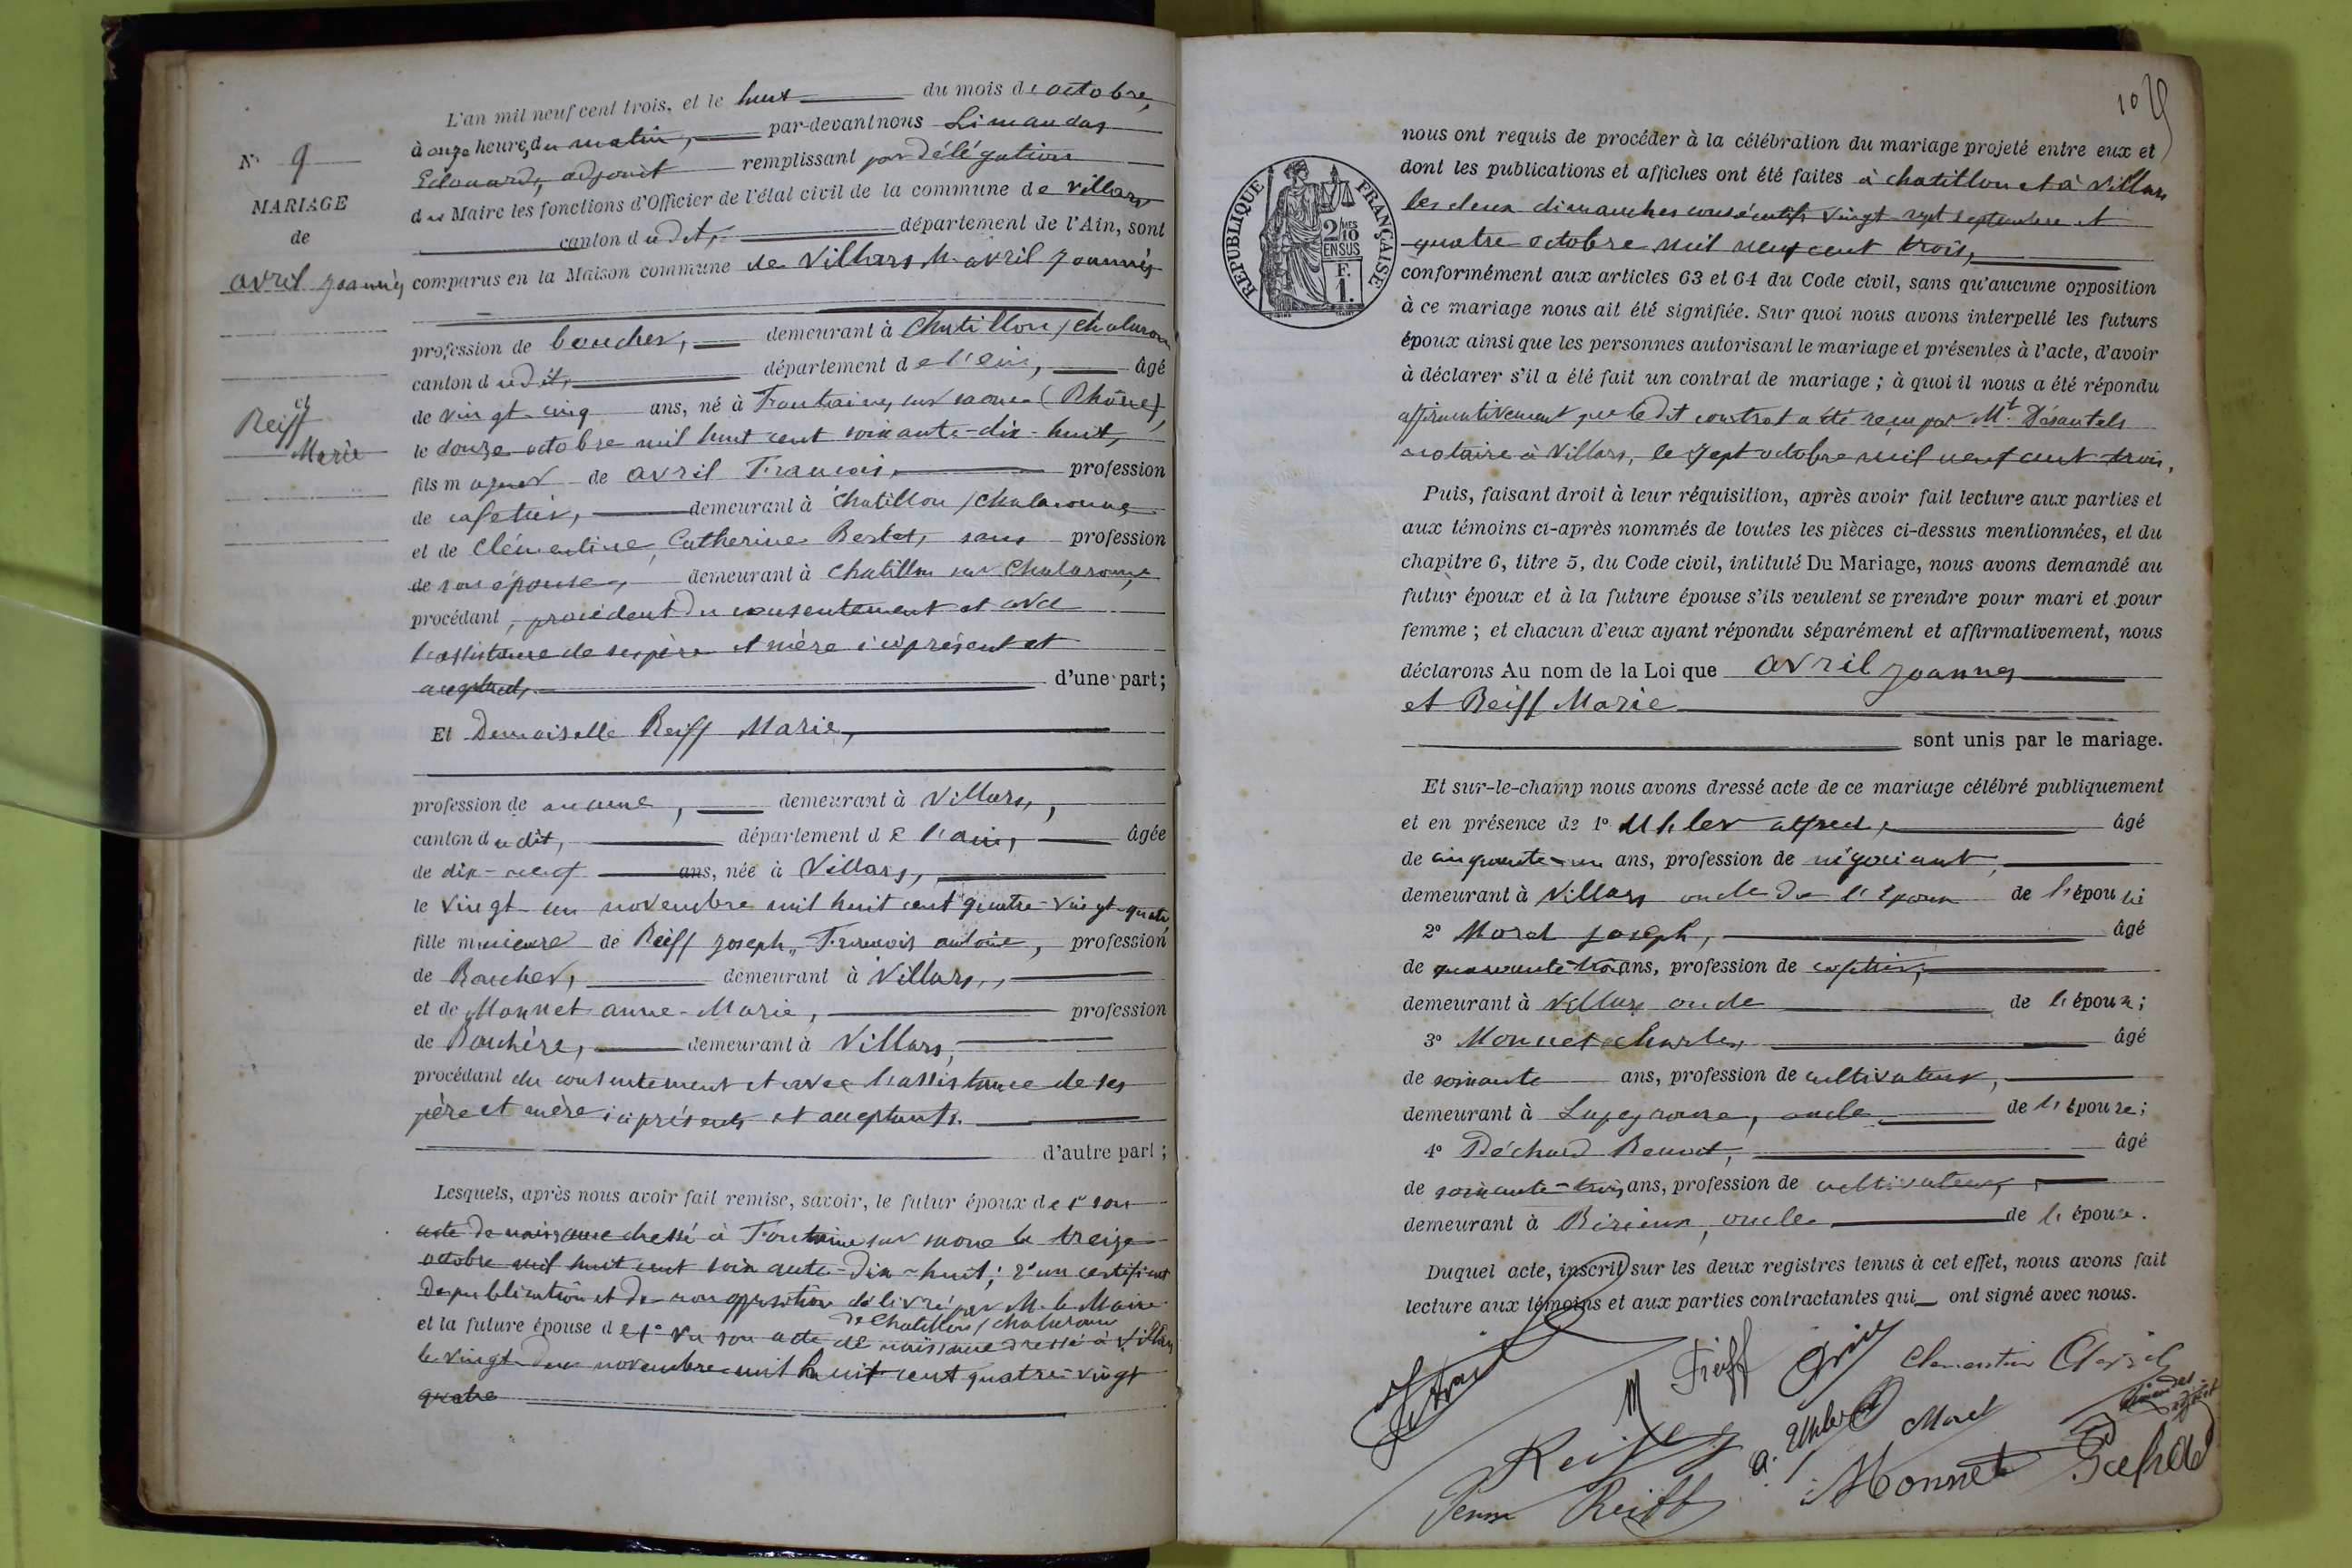 N° 9
MARIAGE
de
Avril Joannès
et
Reiff
Marie
L'an mil neuf cent trois, et le huit du mois de octobre,
à onze heures du matin, par-devant nous Limandas
Edouard, adjoint remplissant par délégation
du Maire les fonctions d'Officier de l'état civil de la commune de Villars
canton dudit, département de l'Ain, sont
comparus en la Maison commune de Villars M. Avril Joannès
profession de boucher, demeurant à Chatillon / Chalaronne
canton dudit, département de l'Ain, âgé
de vingt-cinq ans, né à Fontaines sur Saone (Rhône),
le douze octobre mil huit cent soixante-dix-huit,
fils majeur de Avril François, profession
de cafetier, demeurant à Chatillon / Chalaronne
et de Clémentine Catherine sans profession
de son épouse, demeurant à Chatillon sur Chalaronne,
procédant, procédant du consentement et avec
l'assistance de ses père et mère ici présent et
acceptant, d'une part;
Et Demoiselle Reiff Marie,
profession de aucune, demeurant à Villars,
canton dudit, département de l'Ain, âgée
de dix-neuf ans, née à Villars,
le vingt un novembre mil huit cent quatre-vingt-quatre
fille mineure de Reiff Joseph, François Antoine, profession
de Boucher, demeurant à Villars,
et de Monnet Anne-Marie, profession
de Bouchère, demeurant à Villars,
procédant du consentement et avec l'assistance de ses
père et mère ici présents et acceptants.
d'autre part;
Lesquels, après nous avoir fait remise, savoir, le futur époux de 1° son
acte de naissance dressé à Fontaine sur Saone le treize
octobre mil huit cent soixante-dix-huit; 2° un certificat
de publication et de non opposition délivré par M. le Maire
de Chatillon / Chalaronne
et la future épouse de 1° vu son acte de naissance dressé à Villars
le vingt-deux novembre mil huit cent quatre-vingt
quatre
nous ont requis de procéder à la célébration du mariage projeté entre eux et
dont les publications et affiches ont été faites à Chatillon et à Villars
les deux dimanches consécutifs vingt-sept septembre et
quatre octobre mil neuf cent trois,
RÉPUBLIQUE FRANÇAISE
2/10 MES
EN SUS
F.
1.
conformément aux articles 63 et 64 du Code civil, sans qu'aucune opposition
à ce mariage nous ait été signifiée. Sur quoi nous avons interpellé les futurs
époux ainsi que les personnes autorisant le mariage et présentes à l'acte, d'avoir
à déclarer s'il a été fait un contrat de mariage; à quoi il nous a été répondu
affirmativement que ledit contrat a été reçu par Mt. Désautels
notaire à Villars, le sept octobre mil neuf cent trois,
Puis, faisant droit à leur réquisition, après avoir fait lecture aux parties et
aux témoins ci-après nommés de toutes les pièces ci-dessus mentionnées, et du
chapitre 6, titre 5, du Code civil, intitulé Du Mariage, nous avons demandé au
futur époux et à la future épouse s'ils veulent se prendre pour mari et pour
femme; et chacun d'eux ayant répondu séparément et affirmativement, nous
déclarons Au nom de la Loi que Avril Joannes
et Reiff Marie
sont unis par le mariage.
Et sur-le-champ nous avons dressé acte de ce mariage célébré publiquement
et en présence de 1° Uhler Alfred, âgé
de cinquante-un ans, profession de négociant,
demeurant à Villars oncle de l'époux de l'épou
2° Morel Joseph, âgé
de quarante-trois ans, profession de cafetier,
demeurant à Villars oncle de l'époux;
3° Monnet Charles, âgé
de soixante ans, profession de cultivateur,
demeurant à Lapeyrouse, oncle de l'épouse;
4° Déchard Benoit, âgé
de soixante-trois ans, profession de cultivateur,
demeurant à Birieux, oncle de l'épouse.
Duquel acte, inscrit sur les deux registres tenus à cet effet, nous avons fait
lecture aux témoins et aux parties contractantes qui ont signé avec nous.
M Reiff
Clementine
A. Uhler Morel
Reiff Monnet